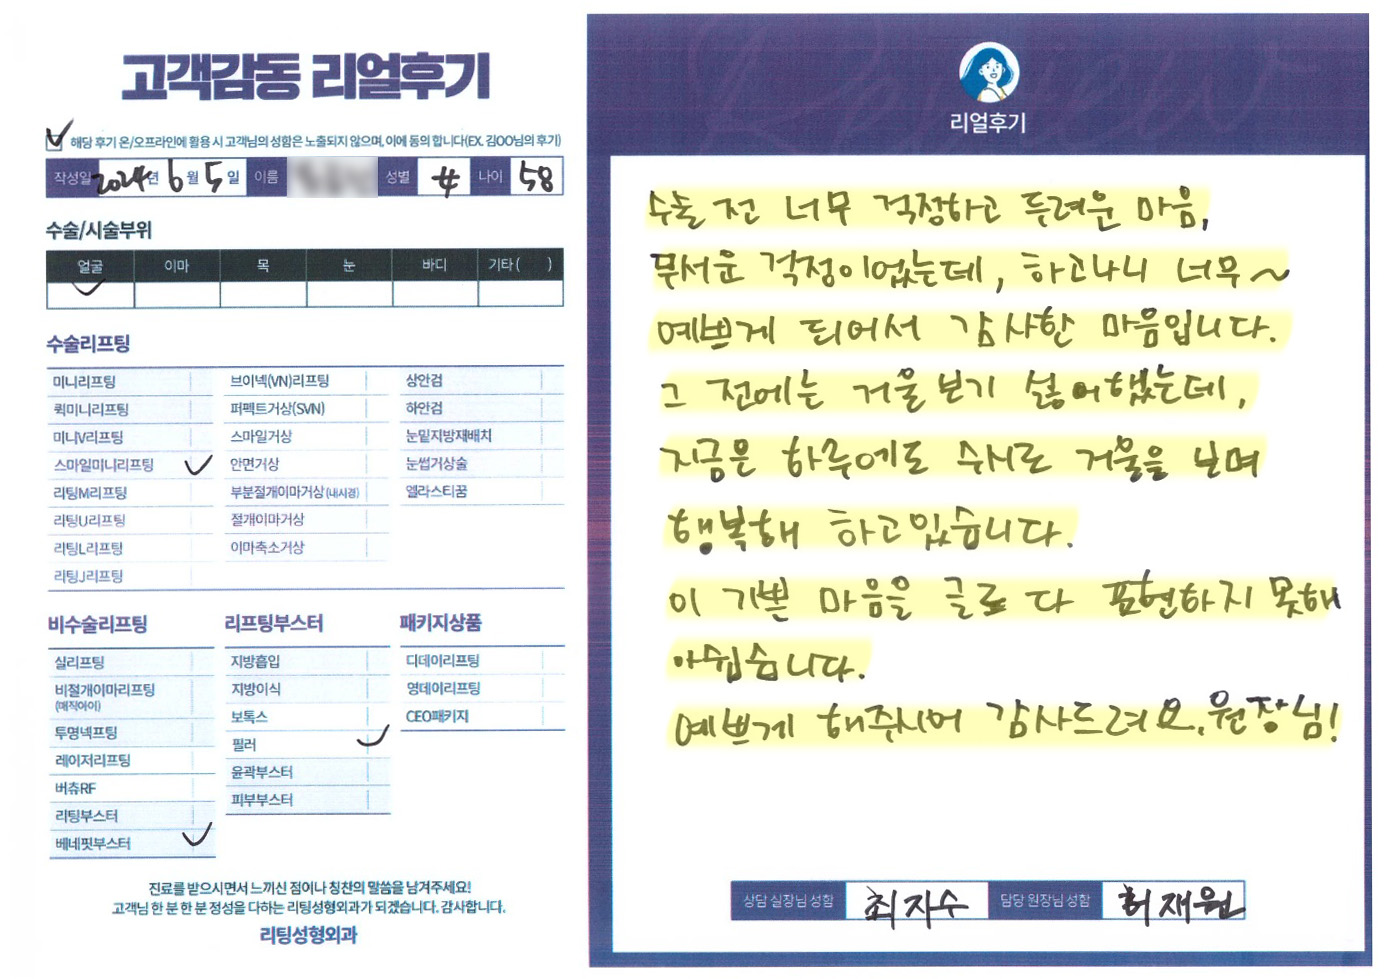 고객감동 리얼후기
해당 후기 온/오프라인에 활용 시 고객님의 성함은 노출되지 않으며, 이에 동의 합니다(EX. 김OO님의 후기)
작성일 2024년 6월 5일 이름 성별 나이 58
수술/시술부위
얼굴 이마 목 눈 바디 기타 ( )
수술리프팅
미니리프팅 브이넥(VN)리프팅 상안검
퀵미니리프팅 퍼펙트거상(SVN) 하안검
미니V리프팅 스마일거상 눈밑지방재배치
스마일미니리프팅 안면거상 눈썹거상술
리팅M리프팅 부분절개이마거상(내시경) 엘라스티꿈
리팅U리프팅 절개이마거상
리팅L리프팅 이마축소거상
리팅J리프팅
비수술리프팅
실리프팅
비절개이마리프팅
(매직아이)
투명넥프팅
레이저리프팅
버츄RF
리팅부스터
베네핏부스터
리프팅부스터
지방흡입
지방이식
보톡스
필러
윤곽부스터
피부부스터
패키지상품
디데이리프팅
영데이리프팅
CEO패키지
진료를 받으시면서 느끼신 점이나 칭찬의 말씀을 남겨주세요!
고객님 한 분 한 분 정성을 다하는 리팅성형외과가 되겠습니다. 감사합니다.
리팅성형외과
Review
리얼후기
수술 전 너무 걱정하고 두려운 마음,
무서운 걱정이었는데, 하고나니 너무~
예쁘게 되어서 감사한 마음입니다.
그 전에는 거울 보기 싫어했는데,
지금은 하루에도 수시로 거울을 보며
행복해 하고있습니다.
이 기쁜 마음을 글로 다 표현하지 못해
아쉽습니다.
예쁘게 해주시어 감사드려요, 원장님!
상담 실장님 성함 최지수 담당 원장님 성함 허재원